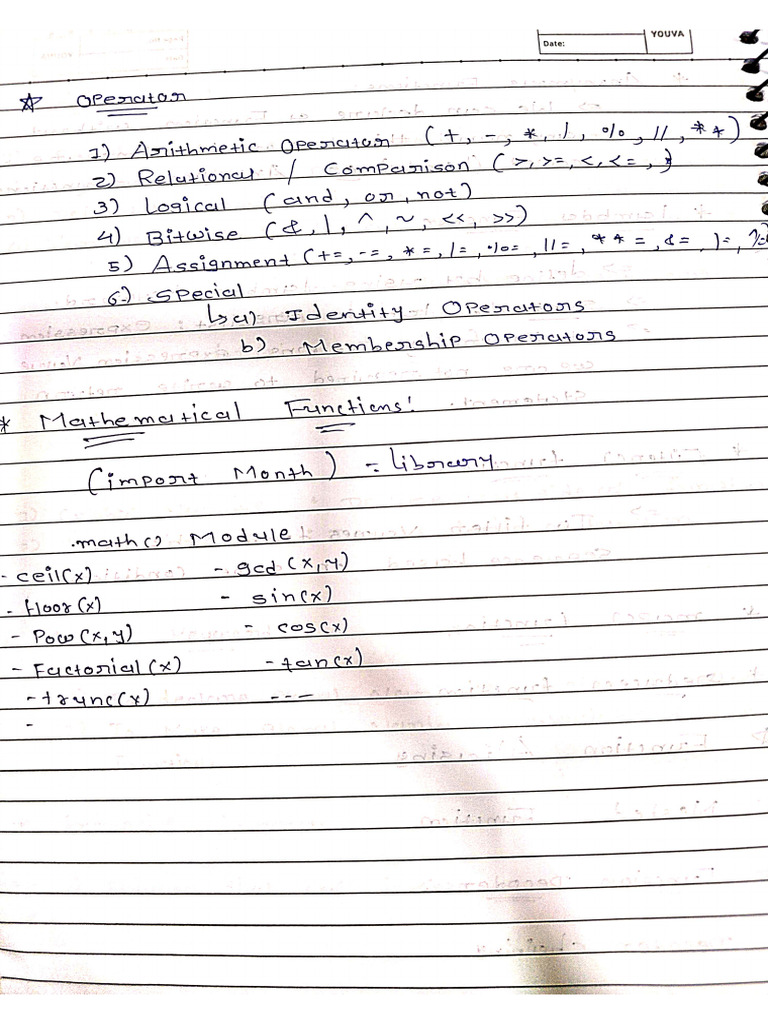 YOUVA
Date:
* Operator
1) Arithmetic Operator (+, -, *, /, %, //, **)
2) Relational / Comparison (>, >=, <, <=,
3) Logical (and, or, not)
4) Bitwise (&, |, ^, ~, <<, >>)
5) Assignment (+=, -=, *=, /=, %=, //=, **=, &=, |=,
6) Special
↳ a) Identity Operators
b) Membership Operators
* Mathematical Functions:
(import Month) = Library
.math() Module
- ceil(x) - gcd(x,y)
- floor(x) - sin(x)
- Pow(x,y) - cos(x)
- Factorial(x) - tan(x)
- trunc(x) ---
-